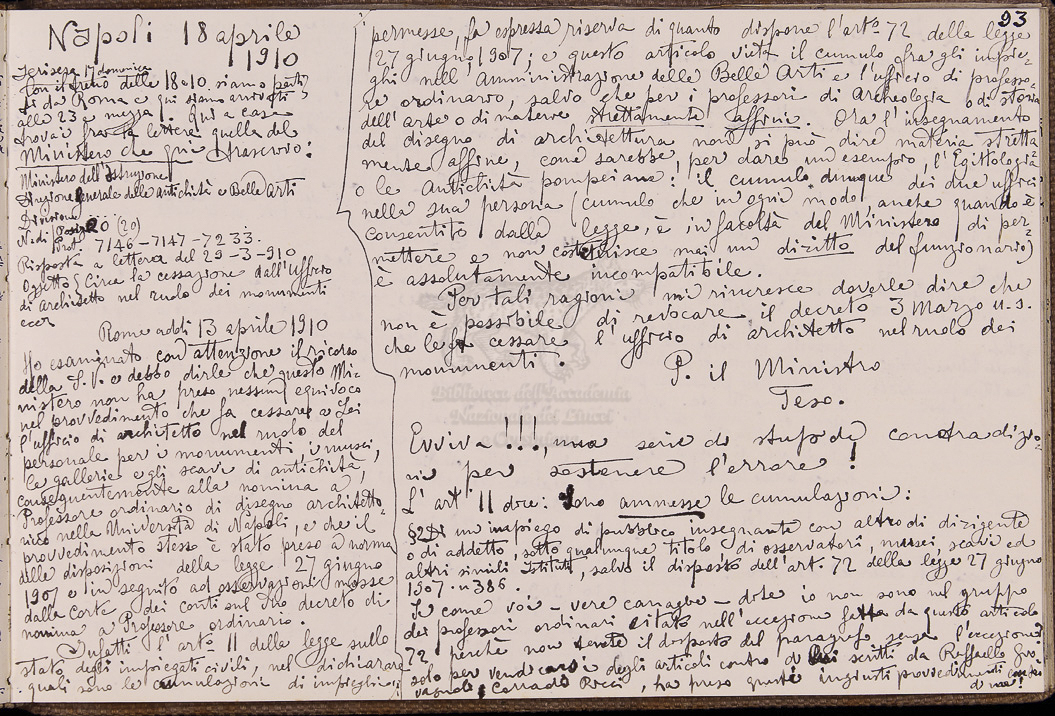 93
Napoli 18 aprile
1910
Ieri sera 17 domenica
con il treno delle 18 e 10 siamo parti
ti da Roma e qui siamo arrivati
alle 23 e mezza. Qui a casa
trovai fra le lettere quella del
Ministero che qui trascrivo:
Ministero dell'Istruzione
Direzione Generale delle antichità e Belle Arti
Divisione
N. di Posiz. 20 (20)
Prot. 7146-7147-7233.
Risposta a lettera del 29-3-910
Oggetto Circa la cessazione dall'ufficio
di architetto nel ruolo dei monumenti
ecc.
Roma addì 13 aprile 1910
Ho esaminato con attenzione il ricorso
della S.V. e debbo dirle che questo Mi-
nistero non ha preso nessun equivoco
nel provvedimento che fa cessare a Lei
l'ufficio di architetto nel ruolo del
personale per i monumenti, i musei,
le gallerie e gli scavi di antichità,
conseguentemente alla nomina a
Professore ordinario di disegno architetto-
nico nella Università di Napoli, e che il
provvedimento stesso è stato preso a norma
delle disposizioni della legge 27 giugno
1907 e in seguito ad osservazioni mosse
dalla Corte dei conti sul Suo decreto di
nomina a Professore ordinario.
Infatti l'arto 11 della legge sullo
stato degli impiegati civili, nel dichiarare
quali sono le cumulazioni di impieghi
permesse, fa espressa riserva di quanto dispone l'arto 72 della legge
27 giugno 1907; e questo articolo vieta il cumulo fra gli impie-
ghi nell'Amministrazione delle Belle Arti e l'ufficio di professo-
re ordinario, salvo che per i professori di Archeologia o di storia
dell'arte o di materie strettamente affini. Ora l'insegnamento
del disegno di architettura non si può dire materia stretta
mente affine, come sarebbe, per dare un esempio, l'Egittologia
o le Antichità pompeiane: il cumulo dunque dei due uffici
nella sua persona (cumulo che in ogni modo, anche quando è
consentito dalla legge, è in facoltà del Ministero di per
mettere e non costituisce mai un diritto del funzionario)
è assolutamente incompatibile.
Per tali ragioni mi rincresce doverle dire che
non è possibile di revocare il decreto 3 Marzo u.s.
che le fa cessare l'ufficio di architetto nel ruolo dei
monumenti.
P. il Ministro
Teso.
Evviva!!!, una serie di stupide contradizio-
ni per sostenere l'errore!
L'art 11 dice: Sono ammesse le cumulazioni:
§2 Di un impiego di pubblico insegnante con altro di dirigente
o di addetto, sotto qualunque titolo, di osservatorî, musei, scavi ed
altri simili Istituti, salvo il disposto dell'art. 72 della legge 27 giugno
1907 n 386.
E come voi - vere canaglie - dite io non sono nel gruppo
dei professori ordinari citato nell'eccezione fatta da questo articolo
72 perchè non tenete il disposto del paragrafo senza l'eccezione?
solo per vendicarsi degli articoli contro di lui scritti da Raffaello Gio
vagnoli, Corrado Ricci, ha preso questi ingiusti provvedimenti contro
di me!
Biblioteca dell'Accademia
Nazionale dei Lincei
e Corsiniana